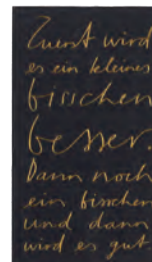 Zuerst wird
es ein kleines
bisschen
besser.
Dann noch
ein bisschen
und dann
wird es gut